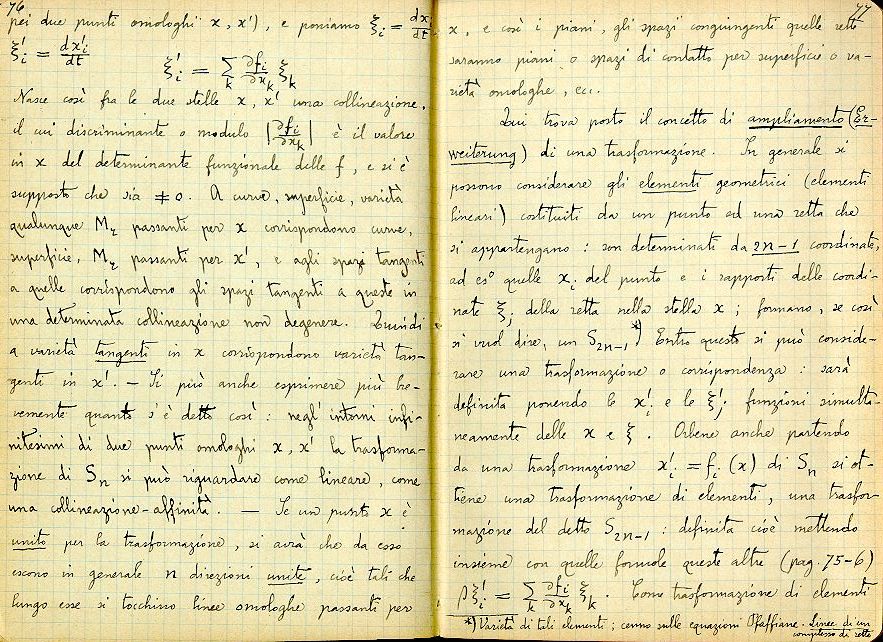 76
pei due punti omologhi x, x'), e poniamo ξ_i = dx_i/dt
ξ'_i = dx'_i/dt
ξ'_i = Σ_k ∂f_i/∂x_k ξ_k
Nasce così fra le due stelle x, x' una collineazione,
il cui discriminante o modulo |∂f_i/∂x_k| è il valore
in x del determinante funzionale delle f, e si è
supposto che sia ≠ 0. A curve, superficie, varietà
qualunque M_r passanti per x corrispondono curve,
superficie, M_r passanti per x', e agli spazi tangenti
a quelle corrispondono gli spazi tangenti a queste in
una determinata collineazione non degenere. Quindi
a varietà tangenti in x corrispondono varietà tan-
genti in x'. — Si può anche esprimere più bre-
vemente quanto s'è detto così: negl'intorni infi-
nitesimi di due punti omologhi x, x' la trasforma-
zione di S_n si può riguardare come lineare, come
una collineazione-affinità. — Se un punto x è
unito per la trasformazione, si avrà che da esso
escono in generale n direzioni unite, cioè tali che
lungo esse si tocchino linee omologhe passanti per
77
x, e così i piani, gli spazi congiungenti quelle rette
saranno piani o spazi di contatto per superficie o va-
rietà omologhe, ecc.
Qui trova posto il concetto di ampliamento (Er-
weiterung) di una trasformazione. In generale si
possono considerare gli elementi geometrici (elementi
lineari) costituiti da un punto ed una retta che
si appartengano: son determinati da 2n-1 coordinate,
ad es° quelle x_i del punto e i rapporti delle coordi-
nate ξ_j della retta nella stella x; formano, se così
si vuol dire, un S_2n-1 *) Entro questo si può conside-
rare una trasformazione o corrispondenza: sarà
definita ponendo le x'_i e le ξ'_j funzioni simulta-
neamente delle x e ξ. Orbene anche partendo
da una trasformazione x'_i = f_i (x) di S_n si ot-
tiene una trasformazione di elementi, una trasfor-
mazione del detto S_2n-1: definita cioè mettendo
insieme con quelle formole queste altre (pag 75-6)
ρξ'_i = Σ_k ∂f_i/∂x_k ξ_k. Come trasformazione di elementi
*) Varietà di tali elementi; cenno sulle equazioni Pfaffiane. Linee di un
complesso di rette